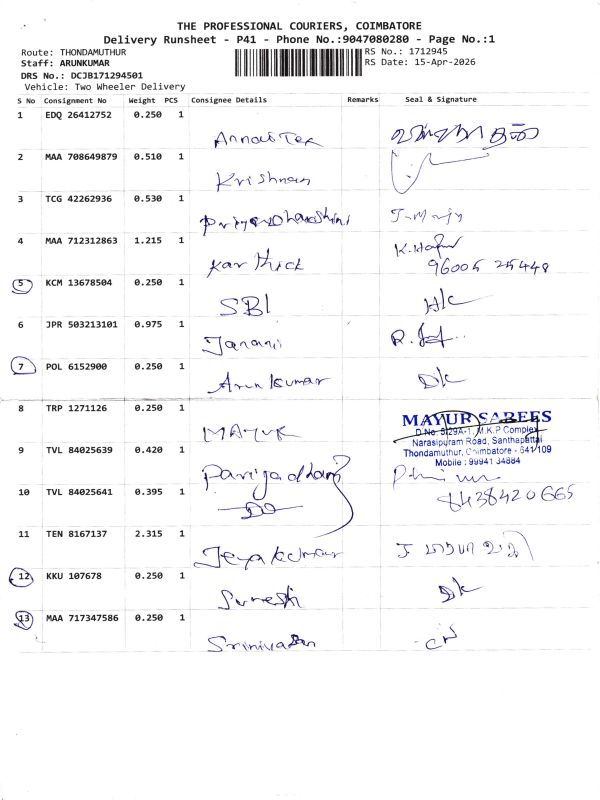 THE PROFESSIONAL COURIERS, COIMBATORE
Delivery Runsheet - P41 - Phone No.:9047080280 - Page No.:1
Route: THONDAMUTHUR RS No.: 1712945
Staff: ARUNKUMAR RS Date: 15-Apr-2026
DRS No.: DCJB171294501
Vehicle: Two Wheeler Delivery
S No Consignment No Weight PCS Consignee Details Remarks Seal & Signature
1 EDQ 26412752 0.250 1
2 MAA 708649879 0.510 1 Krishnan
3 TCG 42262936 0.530 1 PriyaDharshini
4 MAA 712312863 1.215 1 Karthick 96005 25448
5 KCM 13678504 0.250 1 SBI
6 JPR 503213101 0.975 1 Janani
7 POL 6152900 0.250 1 Arun Kumar
8 TRP 1271126 0.250 1 MAYUR
MAYUR SAREES
D.No. 5/29A-1, M.K.P Complex
Narasipuram Road, Santhapettai
Thondamuthur, Coimbatore - 641 109
Mobile : 99941 34884
9 TVL 84025639 0.420 1
10 TVL 84025641 0.395 1 8438420665
11 TEN 8167137 2.315 1 Jeyakumar
12 KKU 107678 0.250 1 Suresh
13 MAA 717347586 0.250 1 Srinivasan